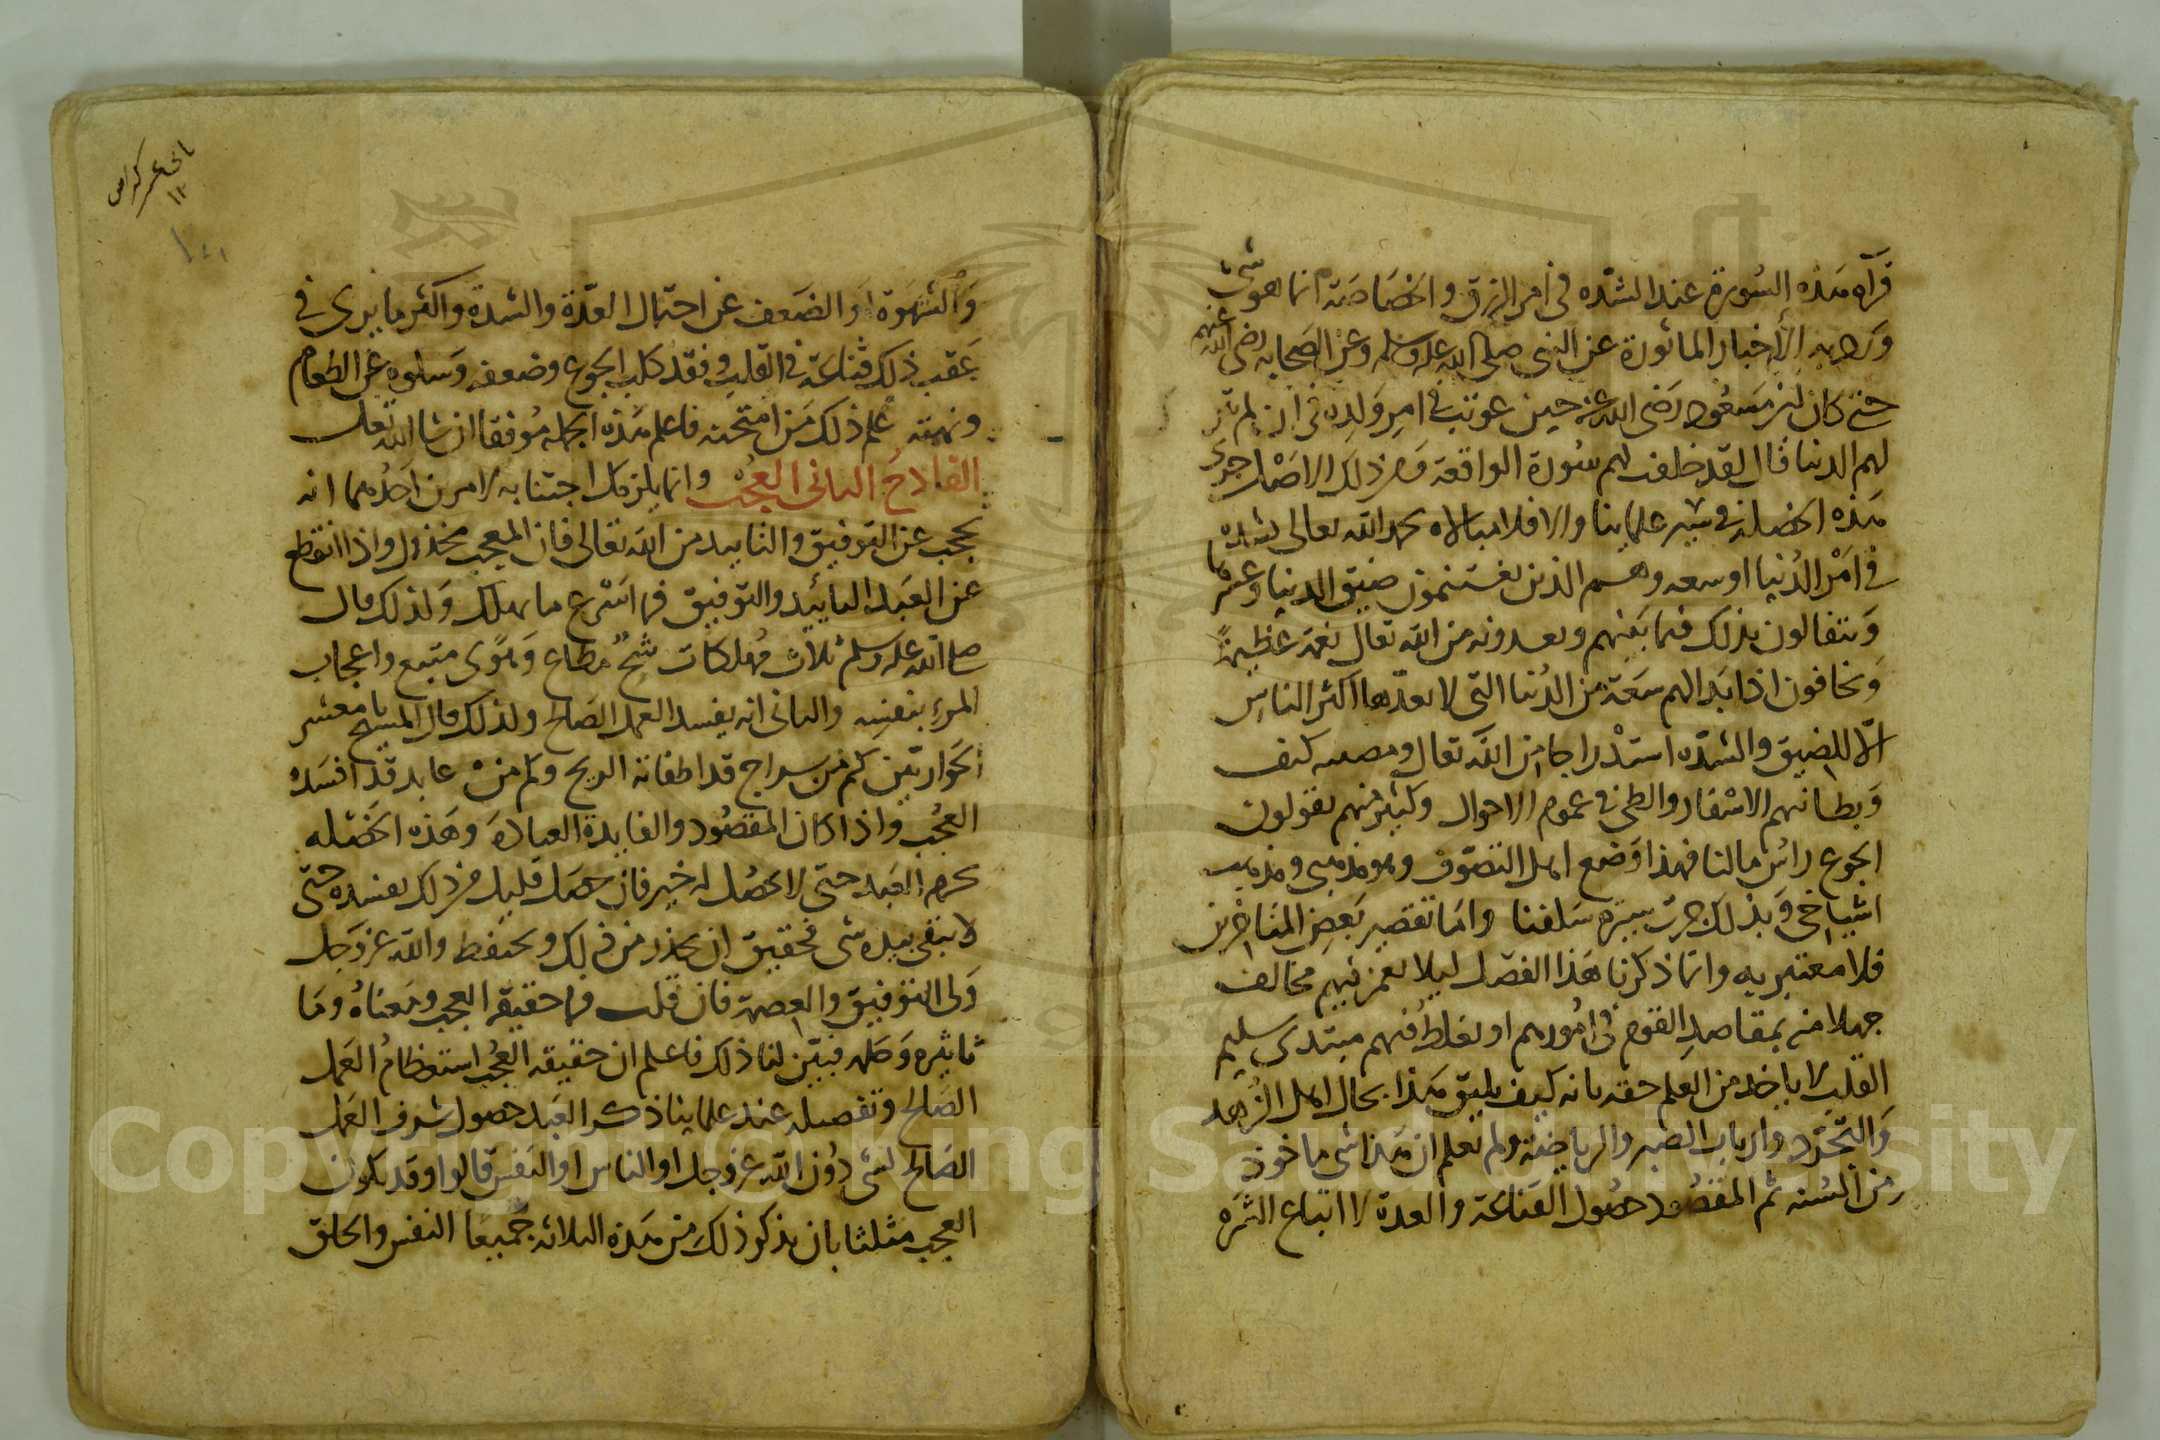 قرآه هذه السورة عند الشده في امر الرزق والخصاصة انما هو شئ
وردت به الاخبار الماثورة عن النبي صلى الله عليه وسلم وعن الصحابه رضى الله عنهم
حتى كان ابن مسعود رضى الله عنه حين عوتب في امر ولده في ان لم يترك
لهم الدنيا قال لقد خلفت لهم سورة الواقعة ومن ذلك الاصل جرت
هذه الخصله في سير علماينا والا فلا مبالاه بحمد الله تعالى بشده
في امر الدنيا او سعه وهم الذين يغتنمون ضيق الدنيا وعسرها
ويتفالون بذلك فيما بينهم ويعدونه من الله تعالى نعمة عظيمة
ويخافون اذا بدا لهم سعة من الدنيا التي لا يعدها اكثر الناس
الا للضيق والشده استدراجا من الله تعالى ومصيبه كيف
وبطانهم الاسفار والطي في عموم الاحوال وكثير منهم يقولون
الجوع راس مالنا فهذا وضع اهل التصوف وهو مذهبي ومذهب
اشياخي وبذلك جرت سيرة سلفنا واما تقصير بعض المتاخرين
فلا معتبر به وانما ذكرنا هذا الفصل ليلا يغمز فيهم مخالف
جهلا منه بمقاصد القوم في امورهم او يغلط فيهم مبتدى سليم
القلب لا ياخذ من العلم حقه بانه كيف يليق هذا بحال اهل الزهد
والتجرد وارباب الصبر والرياضة ولم نعلم ان هذا شى ماخوذ
من السنه ثم المقصود حصول القناعة والعدة لا اتباع الثمره
ثانى عشر كراس
١٢
١٤١
والشهوة او الضعف عن احتمال العدة والشدة واكثر ما يرى في
عقب ذلك قناعة في القلب وفقد كلب الجوع وضعفه وسلوه عن الطعام
ونهمته علم ذلك من امتحنه فاعلم هذه الجمله موفقا ان شا الله تعالى
القادح الثاني العجب وانما يلزمك اجتنابه لامرين احدهما انه
يحجب عن التوفيق والتاييد من الله تعالى فان المعجب مخذول واذا انقطع
عن العبد التاييد والتوفيق فما اسرع ما يهلك ولذلك قال
صلى الله عليه وسلم ثلاث مهلكات شح مطاع وهوى متبع واعجاب
المرء بنفسه والثاني انه يفسد العمل الصالح ولذلك قال المسيح يا معشر
الحواريين كم من سراج قد اطفاته الريح وكم من عابد قد افسده
العجب واذا كان المقصود والفايدة العبادة وهذه الخصله
تحرم العبد حتى لا يحصل له خير فان حصل قليل فذلك يفسده حتى
لا يبقى بيده شى فحقيق ان يحذر من ذلك ويحتفظ والله عز وجل
ولى التوفيق والعصمة فان قلت فما حقيقه العجب ومعناه وما
تاثيره وحكمه فبين لنا ذلك فاعلم ان حقيقه العجب استعظام العمل
الصالح وتفصيله عند علماينا ذكر العبد حصول شرف العمل
الصالح بشى دون الله عز وجل او الناس او النفس قالوا وقد يكون
العجب مثلثا بان يذكر ذلك من هذه الثلاثه جميعا النفس والخلق